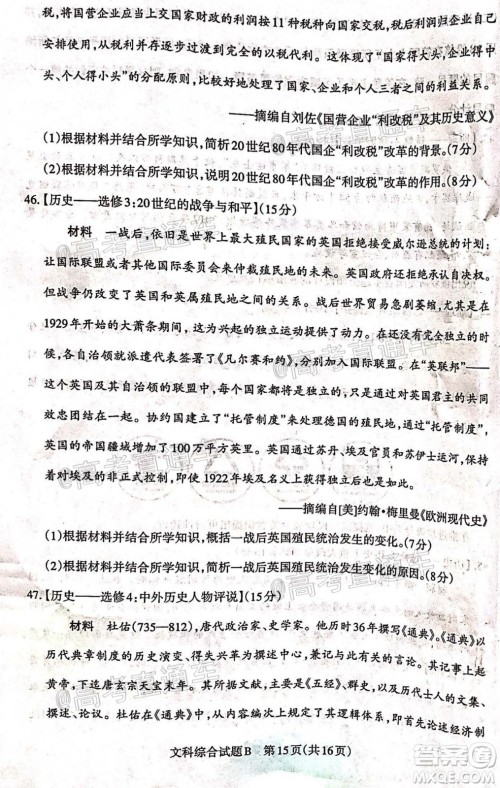 税,将国营企业应当上交国家财政的利润按11种税种向国家交税,税后利润归企业自己
安排使用,从税利并存逐步过渡到完全的以税代利。这体现了“国家得大头,企业得中
头、个人得小头”的分配原则,比较好地处理了国家、企业和个人三者之间的利益关系。
——摘编自刘佐《国营企业“利改税”及其历史意义》
(1)根据材料并结合所学知识,简析20世纪80年代国企“利改税”改革的背景。(7分)
(2)根据材料并结合所学知识,说明20世纪80年代国企“利改税”改革的作用。(8分)
46.【历史——选修3:20世纪的战争与和平】(15分)
材料 一战后,依旧是世界上最大殖民国家的英国拒绝接受威尔逊总统的计划:
让国际联盟或者其他国际委员会来仲裁殖民地的未来。英国政府还拒绝承认自决权。
但战争仍改变了英国和英属殖民地之间的关系。战后世界贸易急剧萎缩,尤其是在
1929年开始的大萧条期间,这大大推动了殖民地的独立运动。在还没有完全独立的时
候,各自治领就派遣代表签署了《凡尔赛和约》,分别加入国际联盟。在“英联邦”——
这个英国及其自治领的联盟中,每个国家都将是独立的,只是通过对英国君主的共同
效忠团结在一起。协约国建立了“托管制度”来统治德国的殖民地,通过这一制度,
英国的帝国疆域增加了100万平方英里。英国通过苏丹、埃及官员和苏伊士运河,保持
着对埃及的非正式控制,即使1922年埃及名义上获得独立以后也是如此。
——摘编自[美]约翰·梅里曼《欧洲现代史》
(1)根据材料并结合所学知识,概括一战后英国殖民统治发生的变化。(7分)
(2)根据材料并结合所学知识,简析一战后英国殖民统治发生变化的原因。(8分)
47.【历史——选修4:中外历史人物评说】(15分)
材料 杜佑(735—812),唐代政治家、史学家。他历时36年撰写《通典》。《通典》以
历代典章制度的历史演变、得失兴革为撰述中心,大体反映了他的政治主张。上起
黄帝,下迄唐玄宗天宝末年。其取材范围非常广泛,主要为《五经》、群史,以及历代文
集、奏疏、论议。杜佑在《通典》中,为自己的撰述确立了前后有序的逻辑体系,把经济制
文科综合试题B 第15页(共16页)
@高考直通车
答案圈
MXQE.COM